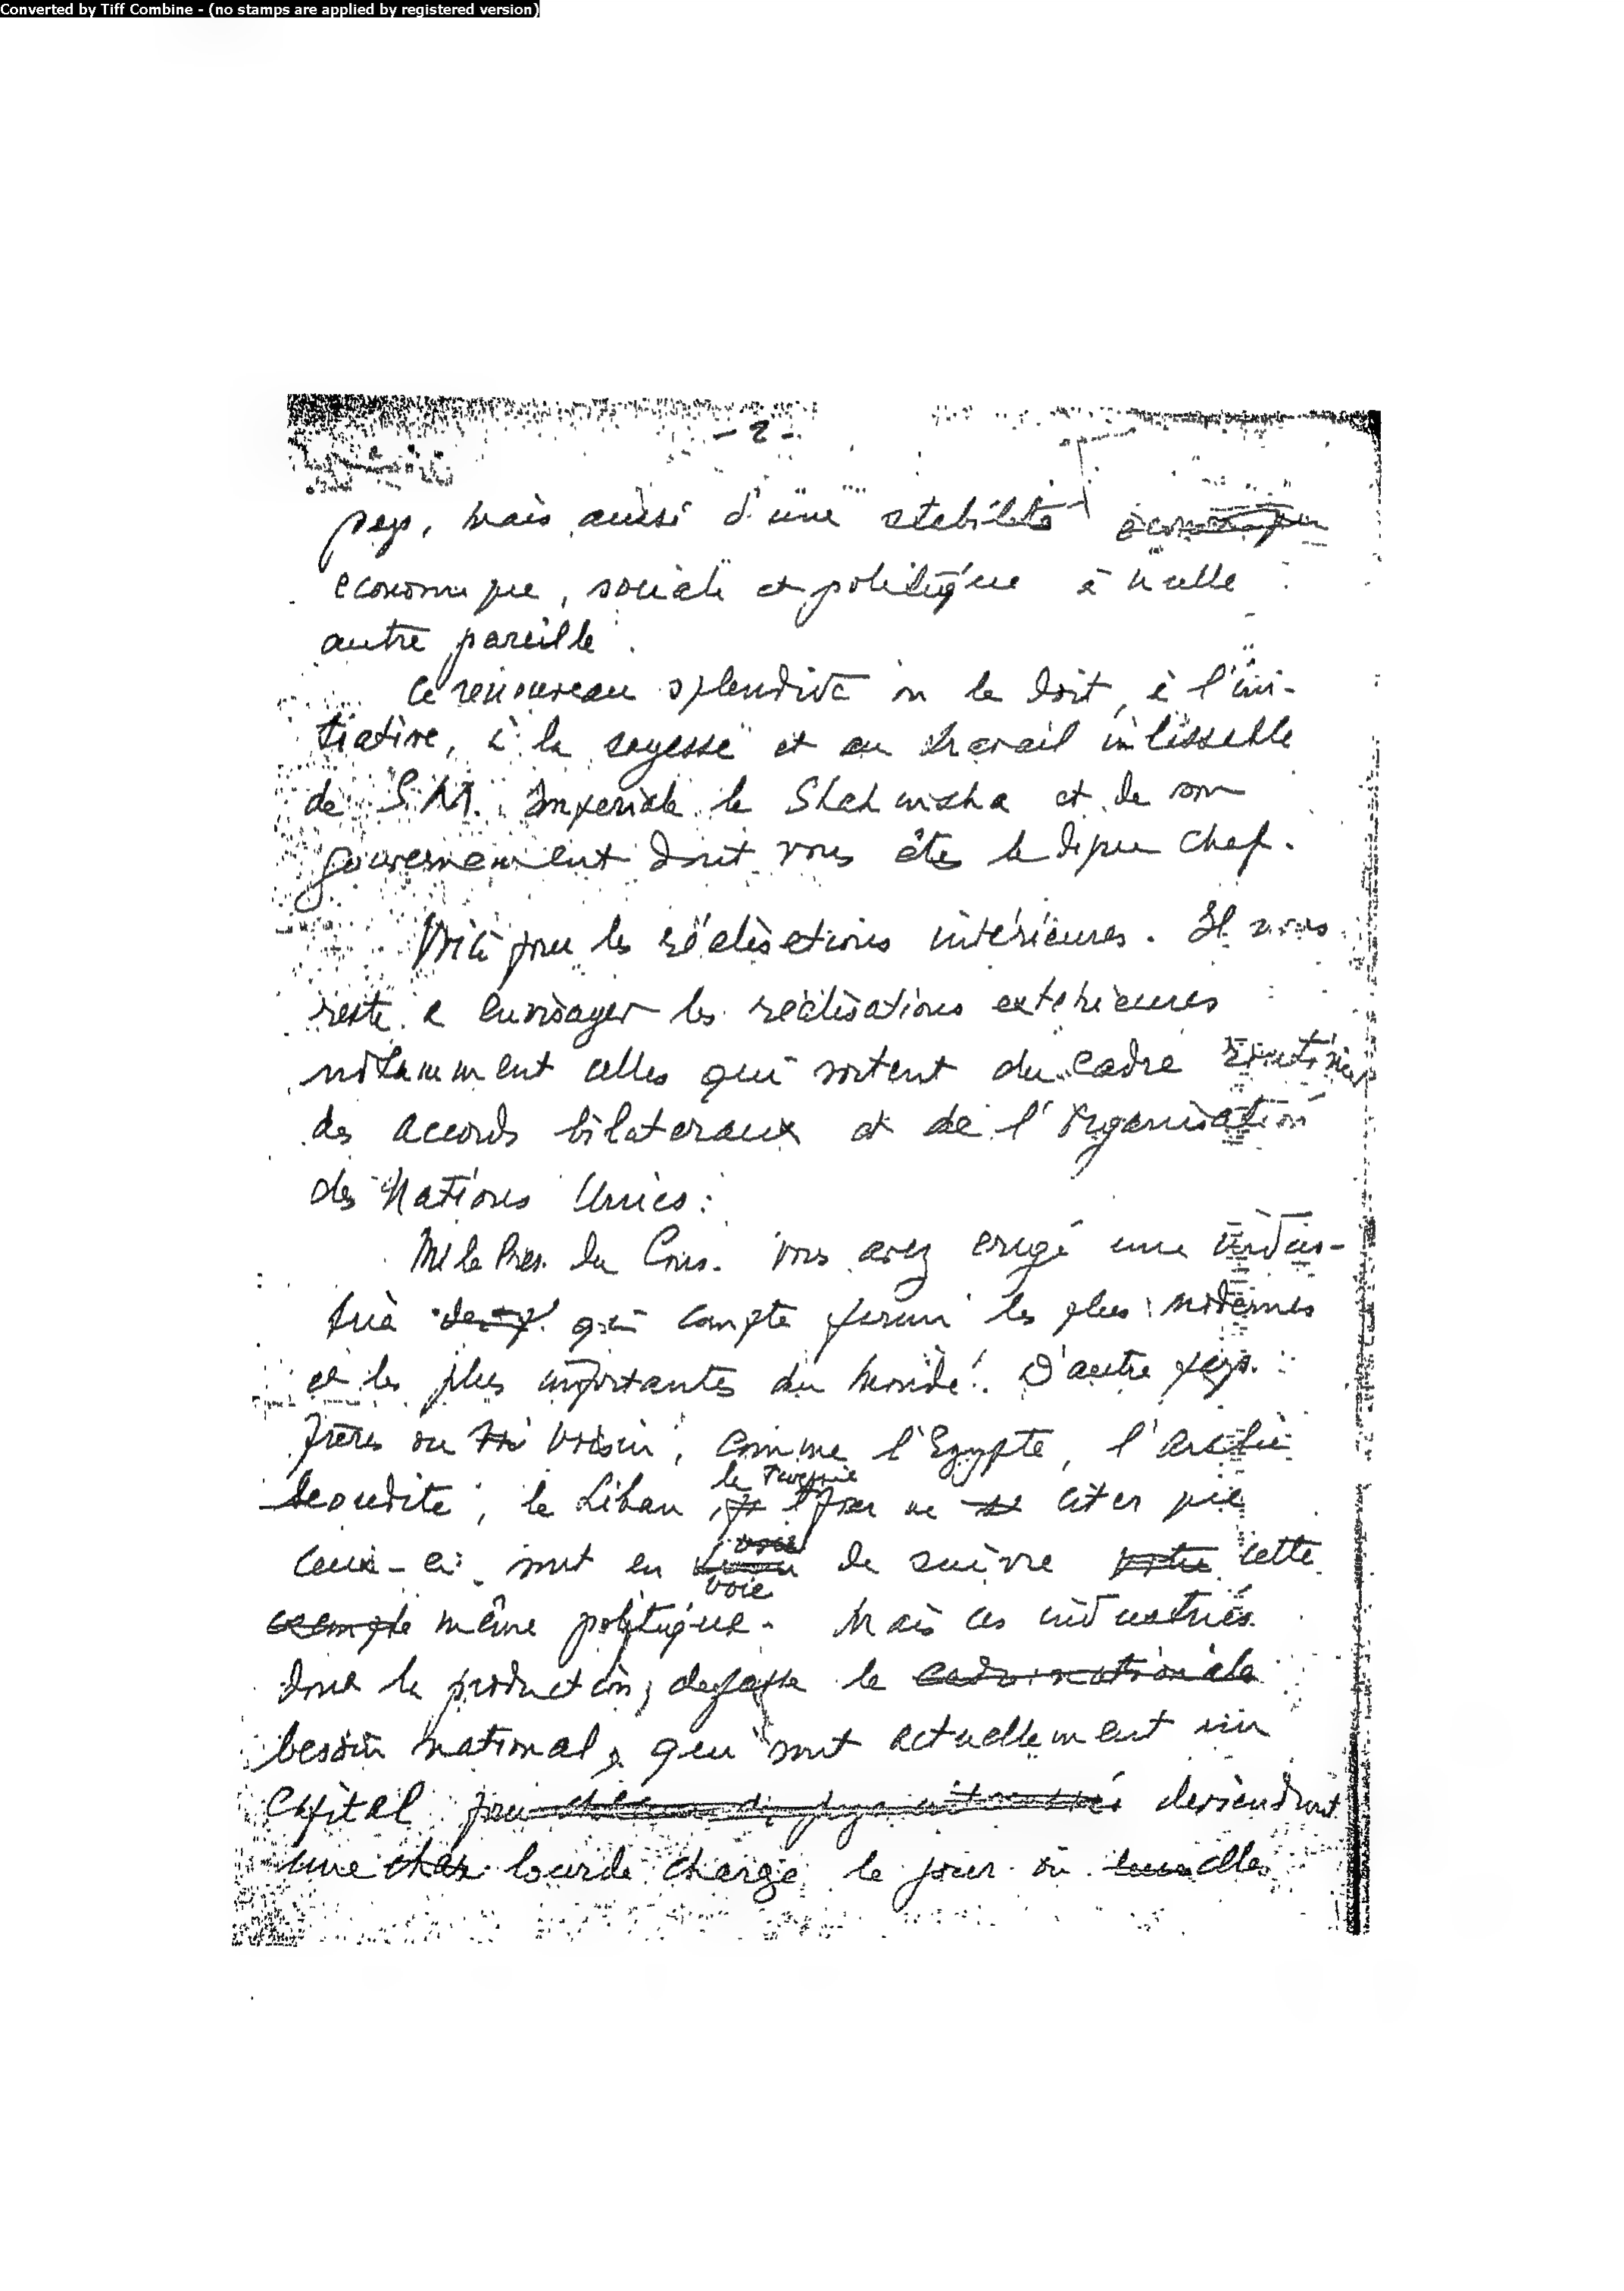 Converted by Tiff Combine - (no stamps are applied by registered version)
- 2 -
pays, mais aussi d'une stabilité economique
economique, sociale et politique à nulle
autre pareille.
Ce renouveau splendide on le doit, à l'ini-
tiative, à la sagesse et au travail inlassable
de S.M. Imperiale le Shahinsha et de son
gouvernement dont vous êtes le digne chef.
Voilà pour les réalisations intérieures. Il nous
reste à envisager les réalisations exterieures
notamment celles qui sortent du cadre
des accords bilateraux et de l'Organisation
des Nations Unies:
M le Pres. du Cons. Vous avez erigé une indus-
trie qui compte parmi les plus modernes
et les plus importantes du monde. D'autre pays
frères ou voisin, comme l'Egypte, l'Arabie
Seoudite, le Liban, la Turquie pour ne citer que
ceux-ci sont en voie de suivre cette
exemple même politique. Mais ces industries
dont la production, depasse le
besoin national, qui sont actuellement un
capital pour deviendront
une lourde charge le jour où elles